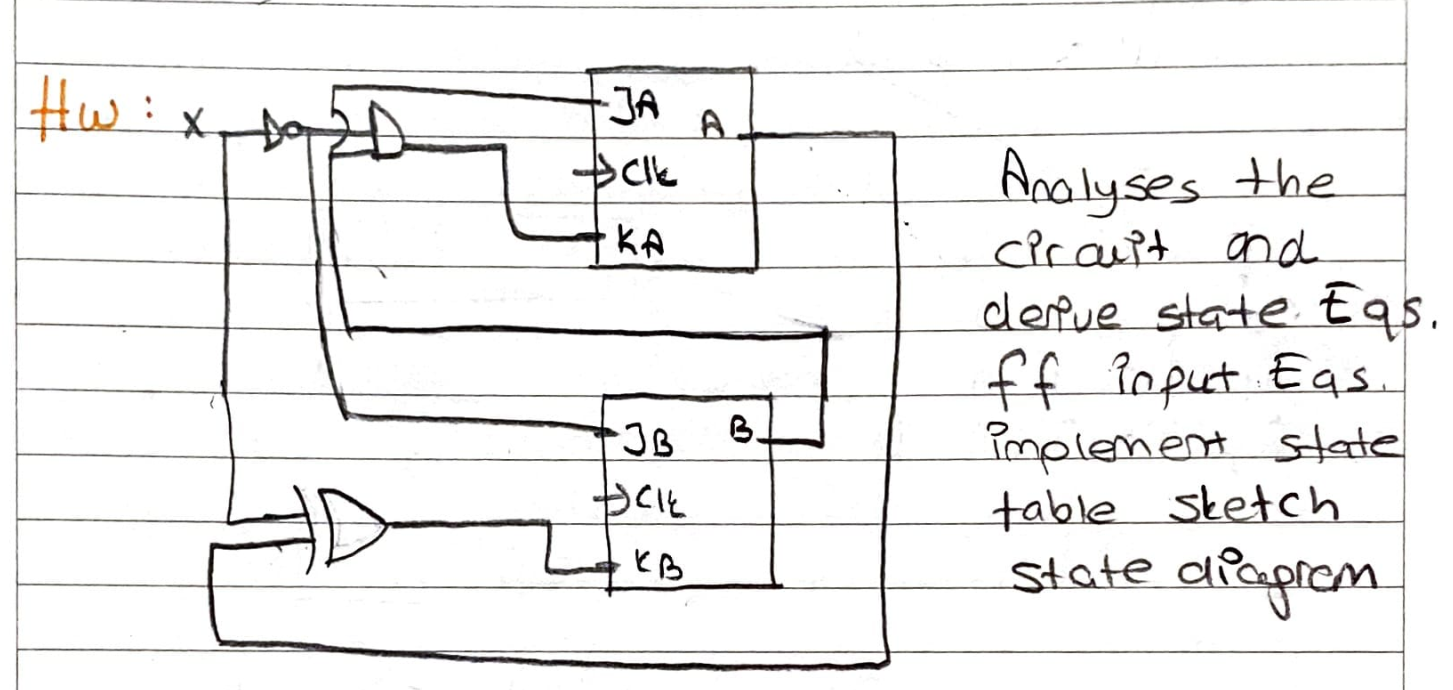 Hw : X
JA
A
Clk
KA
JB
B
Clk
KB
Analyses the
circuit and
derive state Eqs.
ff input Eqs.
implement state
table sketch
state diagram